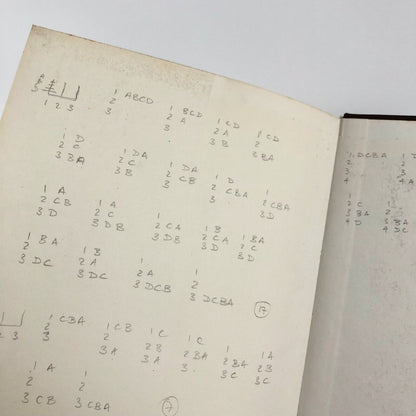 1 2 3
1 ABCD
2
3
1 BCD
2 A
3
1 CD
2 A
3 B
1 CD
2
3 BA
1 D
2 C
3 BA
1 DA
2 C
3 B
1 DA
2 CB
3
1 D
2 CBA
3
1
2 CBA
3 D
1 A
2 CB
3 D
1 A
2 C
3 DB
1
2 CA
3 DB
1 B
2 CA
3 D
1 BA
2 C
3 D
1 BA
2
3 DC
1 B
2 A
3 DC
1
2 A
3 DCB
1
2
3 DCBA
17
2 3
1 CBA
2
3
1 CB
2
3 A
1 C
2 B
3 A
1 C
2 BA
3
1
2 BA
3 C
1 A
2 B
3 C
1 A
2
3 CB
1
2
3 CBA
7
1 DCBA
2
3
4
1 D
2
3
4 A
1
2 C
3 BA
4 D
1
2
3 BA
4 DC